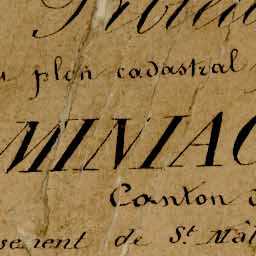 plan cadastral
MINIAC
Canton
de St. Mâl